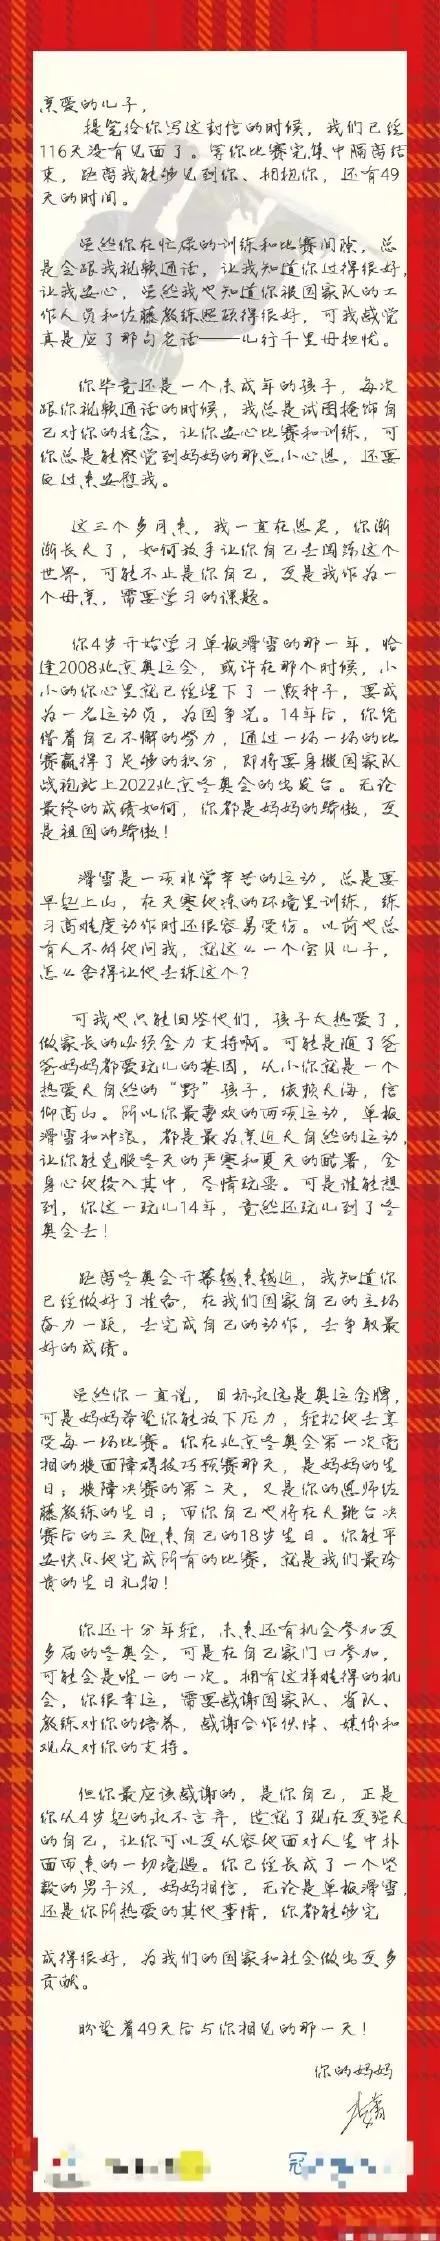 亲爱的儿子，
提笔给你写这封信的时候，我们已经
116天没有见面了。等你比赛完集中隔离结
束，距离我能够见到你、拥抱你，还有49
天的时间。
虽然你在忙碌的训练和比赛间隙，总
是会跟我视频通话，让我知道你过得很好，
让我安心，虽然我也知道你被国家队的工
作人员和佐藤教练照顾得很好，可我感觉
真是应了那句老话——儿行千里母担忧。
你毕竟还是一个未成年的孩子，每次
跟你视频通话的时候，我总是试图掩饰自
己对你的挂念，让你安心比赛和训练，可
你总是能察觉到妈妈的那点小心思，还要
反过来安慰我。
这三个多月来，我一直在思考，你渐
渐长大了，如何放手让你自己去闯荡这个
世界，可能不止是你自己，更是我作为一
个母亲，需要学习的课题。
你4岁开始学习单板滑雪的那一年，恰
逢2008北京奥运会，或许在那个时候，小
小的你心里就已经埋下了一颗种子，要成
为一名运动员，为国争光。14年后，你凭
借着自己不懈的努力，通过一场一场的比
赛赢得了足够的积分，即将要身披国家队
战袍站上2022北京冬奥会的出发台。无论
最终的成绩如何，你都是妈妈的骄傲，更
是祖国的骄傲！
滑雪是一项非常辛苦的运动，总是要
早起上山，在天寒地冻的环境里训练，练
习高难度动作时还很容易受伤。以前也总
有人不解地问我，就这么一个宝贝儿子，
怎么舍得让他去练这个？
可我也只能回答他们，孩子太热爱了，
做家长的必须全力支持啊。可能是随了爸
爸妈妈都爱玩儿的基因，从小你就是一个
热爱大自然的“野”孩子，依赖大海，信
仰高山。所以你最喜欢的两项运动，单板
滑雪和冲浪，都是最为亲近大自然的运动，
让你能克服冬天的严寒和夏天的酷暑，全
身心地投入其中，尽情玩耍。可是谁能想
到，你这一玩儿14年，竟然还玩儿到了冬
奥会去！
距离冬奥会开幕越来越近，我知道你
已经做好了准备，在我们国家自己的主场
奋力一跃，去完成自己的动作，去争取最
好的成绩。
虽然你一直说，目标永远是奥运金牌，
可是妈妈希望你能放下压力，轻松地去享
受每一场比赛。你在北京冬奥会第一次亮
相的坡面障碍技巧预赛那天，是妈妈的生
日；坡障决赛的第二天，又是你的恩师佐
藤教练的生日；而你自己也将在大跳台决
赛后的三天迎来自己的18岁生日。你能平
安快乐地完成所有的比赛，就是我们最珍
贵的生日礼物！
你还十分年轻，未来还有机会参加更
多届的冬奥会，可是在自己家门口参加，
可能会是唯一的一次。拥有这样难得的机
会，你很幸运，需要感谢国家队、省队、
教练对你的培养，感谢合作伙伴、媒体和
观众对你的支持。
但你最应该感谢的，是你自己，正是
你从4岁起的永不言弃，造就了现在更强大
的自己，让你可以更从容地面对人生中扑
面而来的一切境遇。你已经长成了一个坚
毅的男子汉，妈妈相信，无论是单板滑雪，
还是你所热爱的其他事情，你都能够完
成得很好，为我们的国家和社会做出更多
贡献。
盼望着49天后与你相见的那一天！
你的妈妈
冠